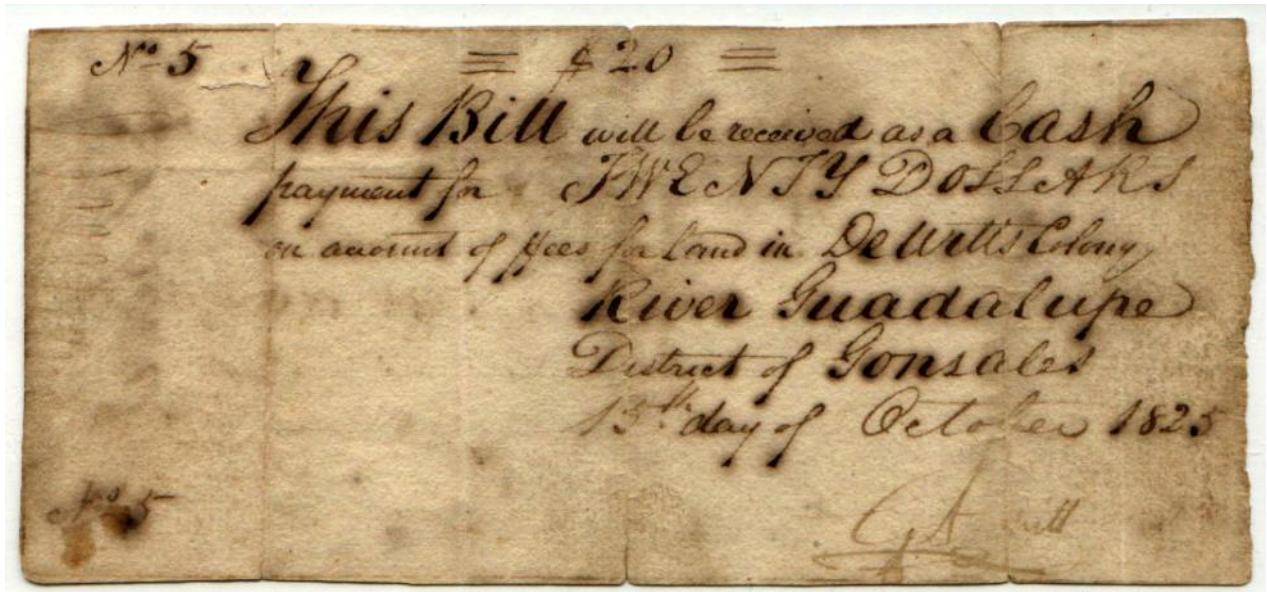 No 5 $20
This Bill will be received as a Cash
payment for TWENTY DOLLARS
on account of ffees for Land in DeWitt's Colony
River Guadalupe
District of Gonsales
13th day of October 1825
No 5